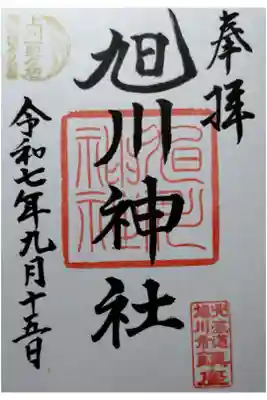 奉拝
旭川神社
令和七年九月十五日
旭川神社
北海道
旭川市東旭川